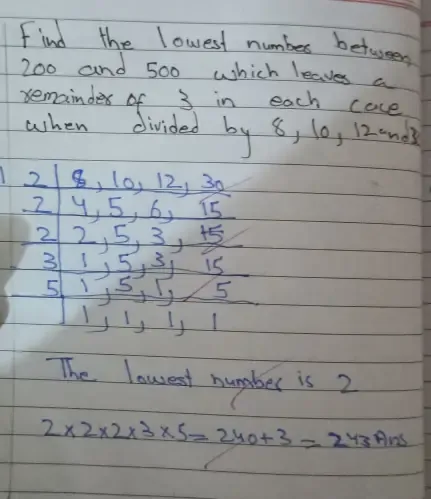 Find the lowest number between
200 and 500 which leaves a
remainder of 3 in each case
when divided by 8, 10, 12 and
2 | 8, 10, 12, 30
2 | 4, 5, 6, 15
2 | 2, 5, 3, 15
3 | 1, 5, 3, 15
5 | 1, 5, 1, 5
| 1, 1, 1, 1
The lowest number is 2
2×2×2×3×5=240+3=243 Ans